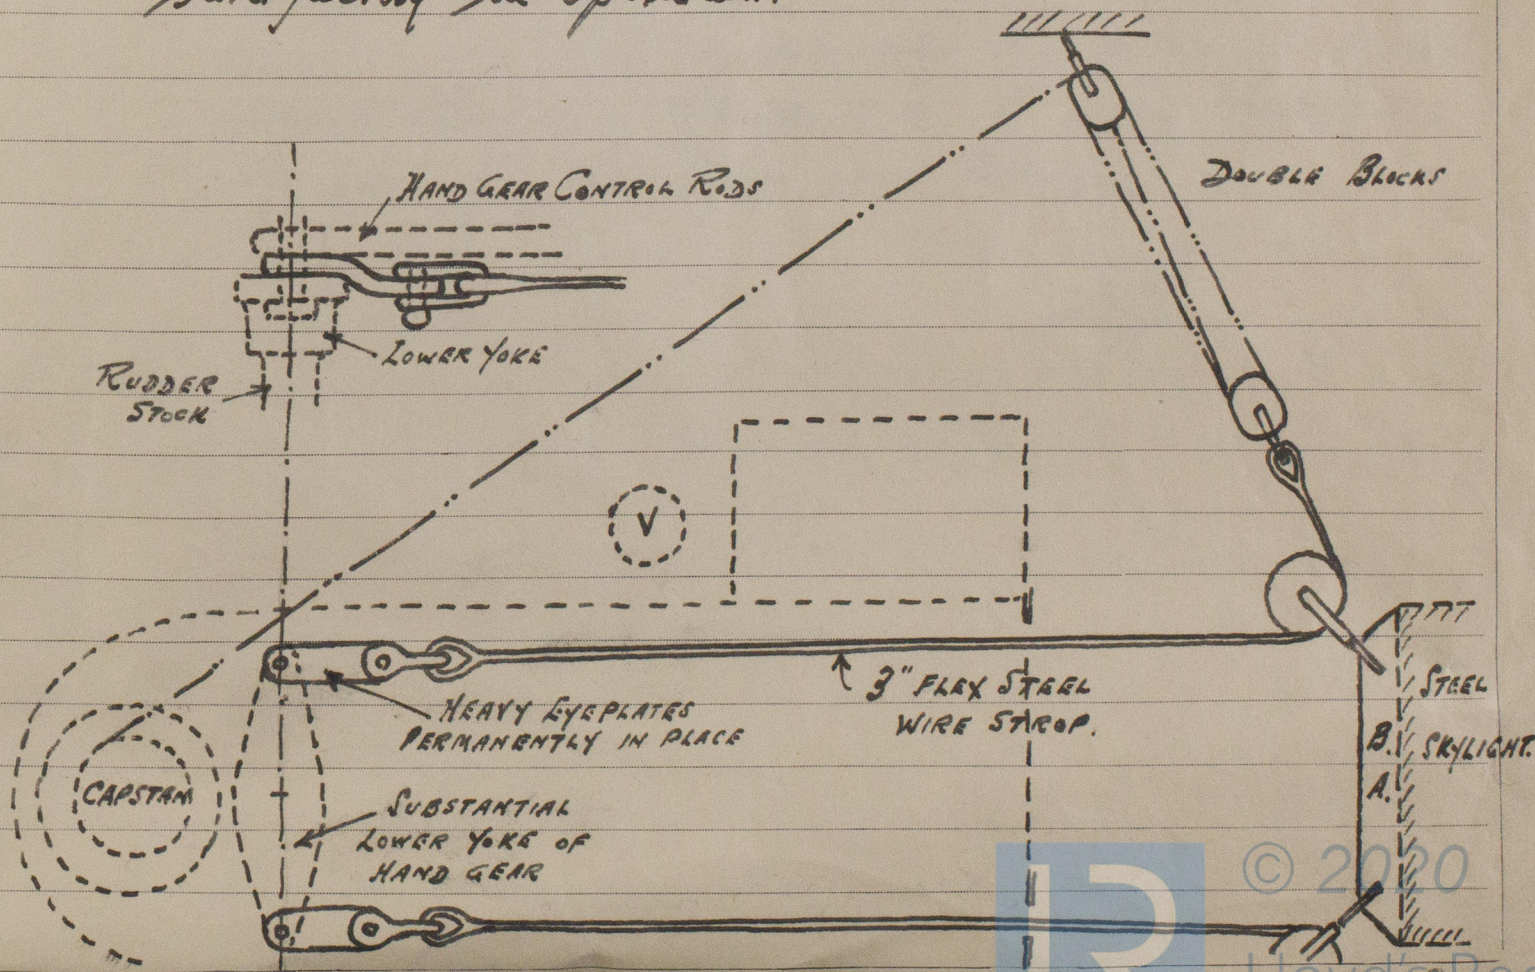 satisfactory in operation.
HAND GEAR CONTROL RODS
DOUBLE BLOCKS
LOWER YOKE
RUDDER
STOCK
V
3" FLEX STEEL
WIRE STROP.
HEAVY EYEPLATES
PERMANENTLY IN PLACE
STEEL
SKYLIGHT.
B.
A.
CAPSTAN
SUBSTANTIAL
LOWER YOKE OF
HAND GEAR
© 2020